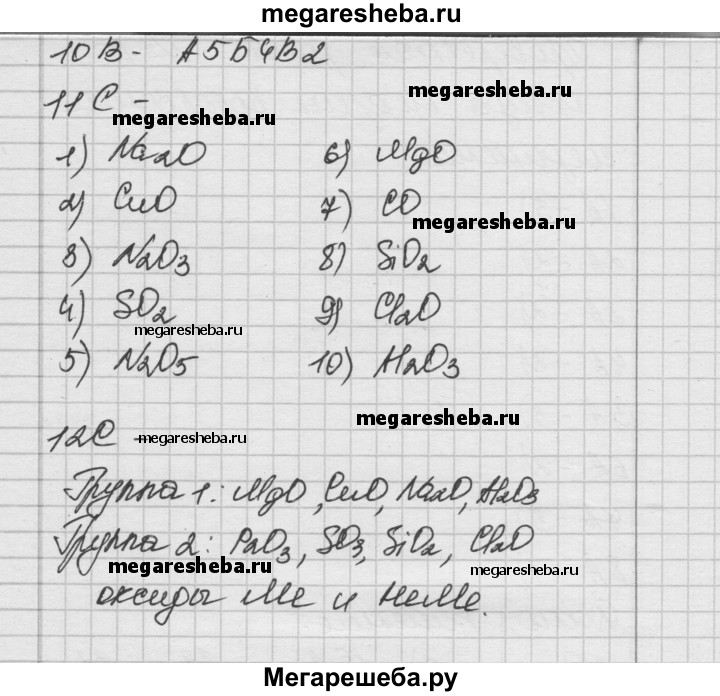 megaresheba.ru
10В - А5Б4В2
11С -
megaresheba.ru
1) Na2O
6) MgO
2) CuO
7) CO
megaresheba.ru
3) N2O3
8) SiO2
4) SO2
9) Cl2O
megaresheba.ru
5) N2O5
10) Al2O3
megaresheba.ru
12С -
megaresheba.ru
Группа 1: MgO, CuO, Na2O, Al2O3
Группа 2: P2O3, SO3, SiO2, Cl2O
megaresheba.ru
megaresheba.ru
оксиды Ме и НеМе.
Мегарешеба.ру